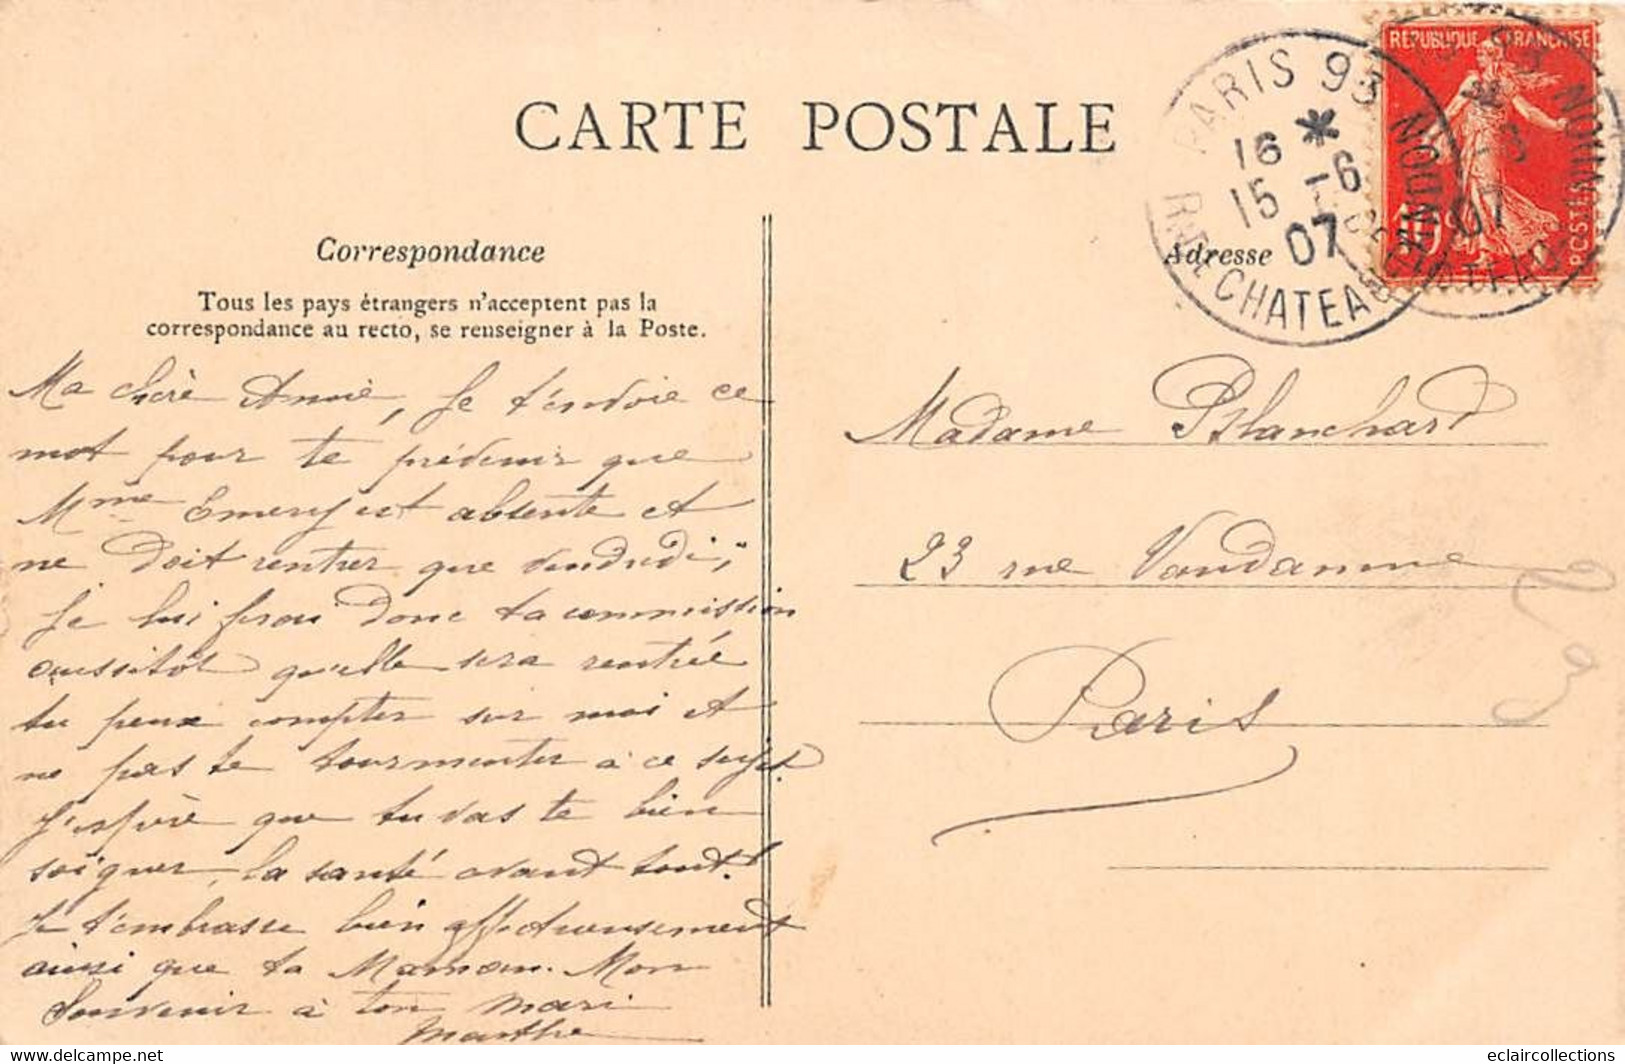 CARTE POSTALE
REPUBLIQUE FRANÇAISE
10
POSTES
PARIS 93
16 *
15 -6
07
Correspondance
Tous les pays étrangers n'acceptent pas la
correspondance au recto, se renseigner à la Poste.
Adresse
Ma chère Annie, Je t'envoie ce
mot pour te prévenir que
Mme Emery est absente et
ne doit rentrer que vendredi,
Je lui ferai donc ta commission
aussitôt qu'elle sera rentrée
tu peux compter sur moi et
ne pas te tourmenter à ce sujet.
J'espère que tu vas te bien
soigner, la santé avant tout!
Je t'embrasse bien affectueusement
ainsi que ta Maman. Mon
Souvenir à ton mari
Marthe
Madame Blanchard
23 rue Vandamme
Paris
delcampe.net
eclaircollections